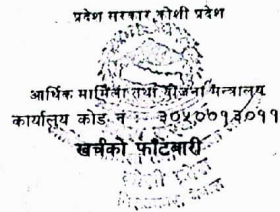 प्रदेश सरकार कोशी प्रदेश
आर्थिक मामिला तथा योजना मन्त्रालय
कार्यालय कोड नं : ३०५०७१३०११
खर्चको फाँटवारी